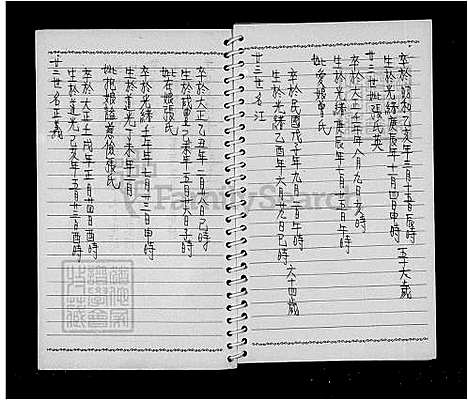 卒於昭和乙亥年三月十五日辰時 五十六歲
生於光緒庚辰年二月四日申時
廿二世妣張氏英
卒於大正壬子年八月九日亥時
生於光緒庚辰年七月五日午時
妣愛娘曾氏
卒於民國戊子年九月二百午時 六十四歲
生於光緒乙酉年六月廿九日巳時
廿三世名江
卒於大正乙丑年二月八日巳時
生於咸豐己未年五月十六日子時
妣在娘張氏
卒於光緒壬午年七月十三日申時
生於道光丁未年二月
妣把娘諡萬儉張氏
卒於大正壬戌年正月廿四日酉時
生於道光己亥年五月廿三日酉時
廿二世名正義
FamilySearch